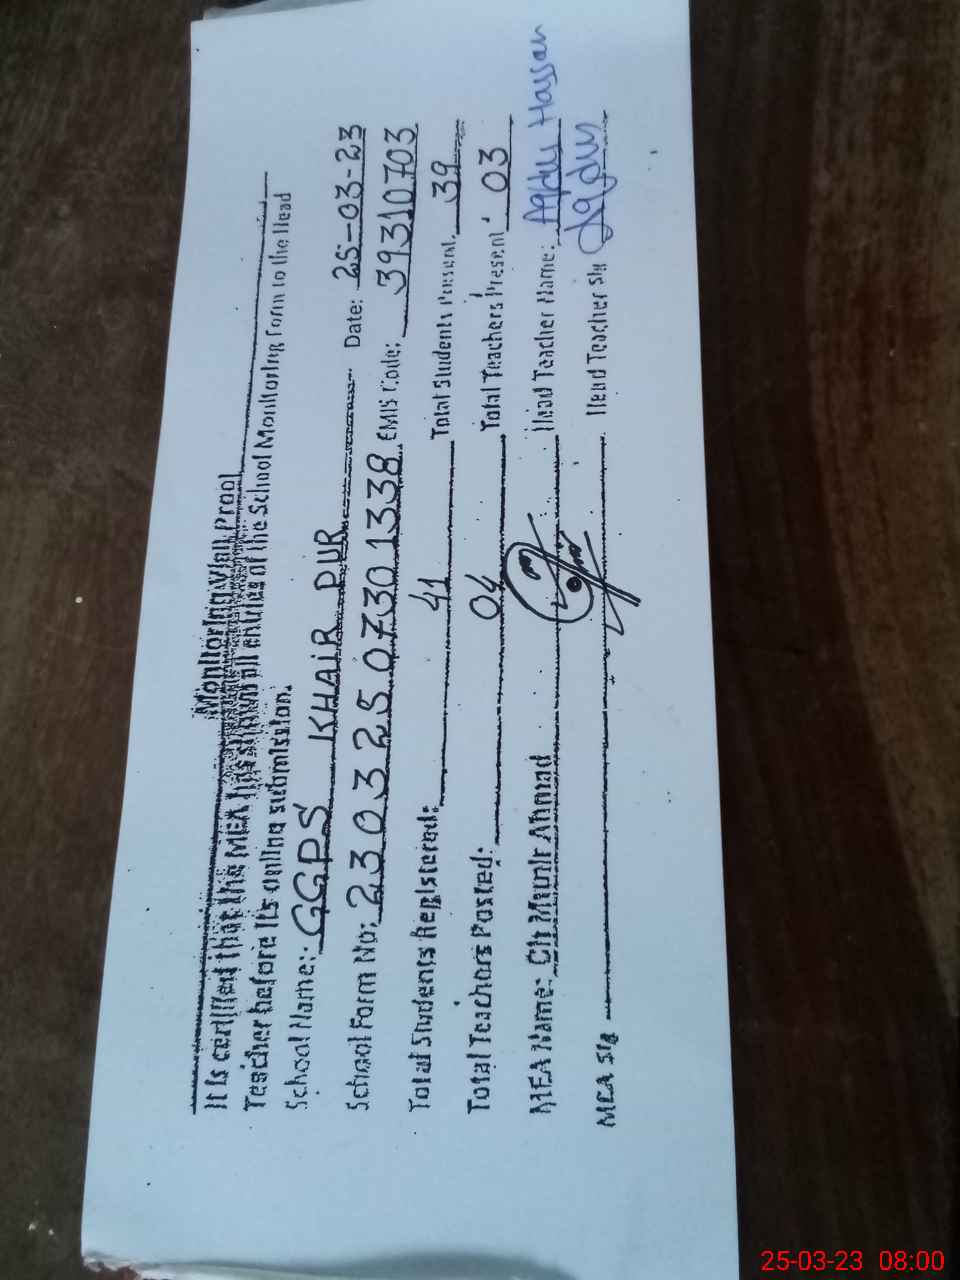 Monitoring Visit Proof
It is certified that the MEA has shown all entries of the School Monitoring Form to the Head
Teacher before its online submission.
School Name: GGPS KHAIR PUR Date: 25-03-23
School Form No: 230325 07301338 EMIS Code: 39310703
Total Students Registered: 41 Total Students Present: 39
Total Teachers Posted: 04 Total Teachers Present: 03
MEA Name: Ch Munir Ahmad Head Teacher Name: Hassan
MEA Sig Head Teacher Sig
25-03-23 08:00